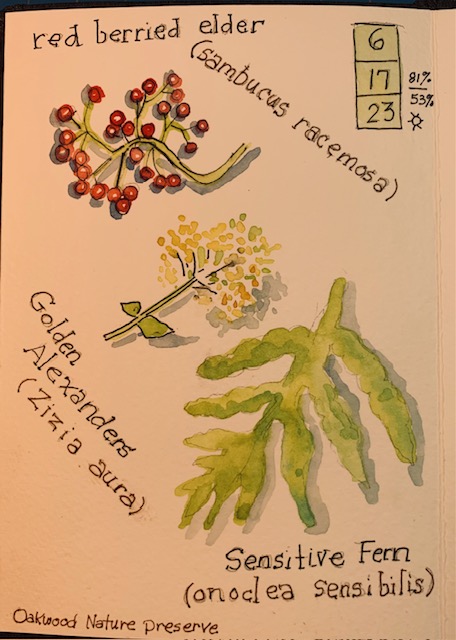 red berried elder
(sambucus racemosa)
6
17
23
81%
53%
Golden
Alexanders
(Zizia aura)
Sensitive Fern
(onoclea sensibilis)
Oakwood Nature Preserve